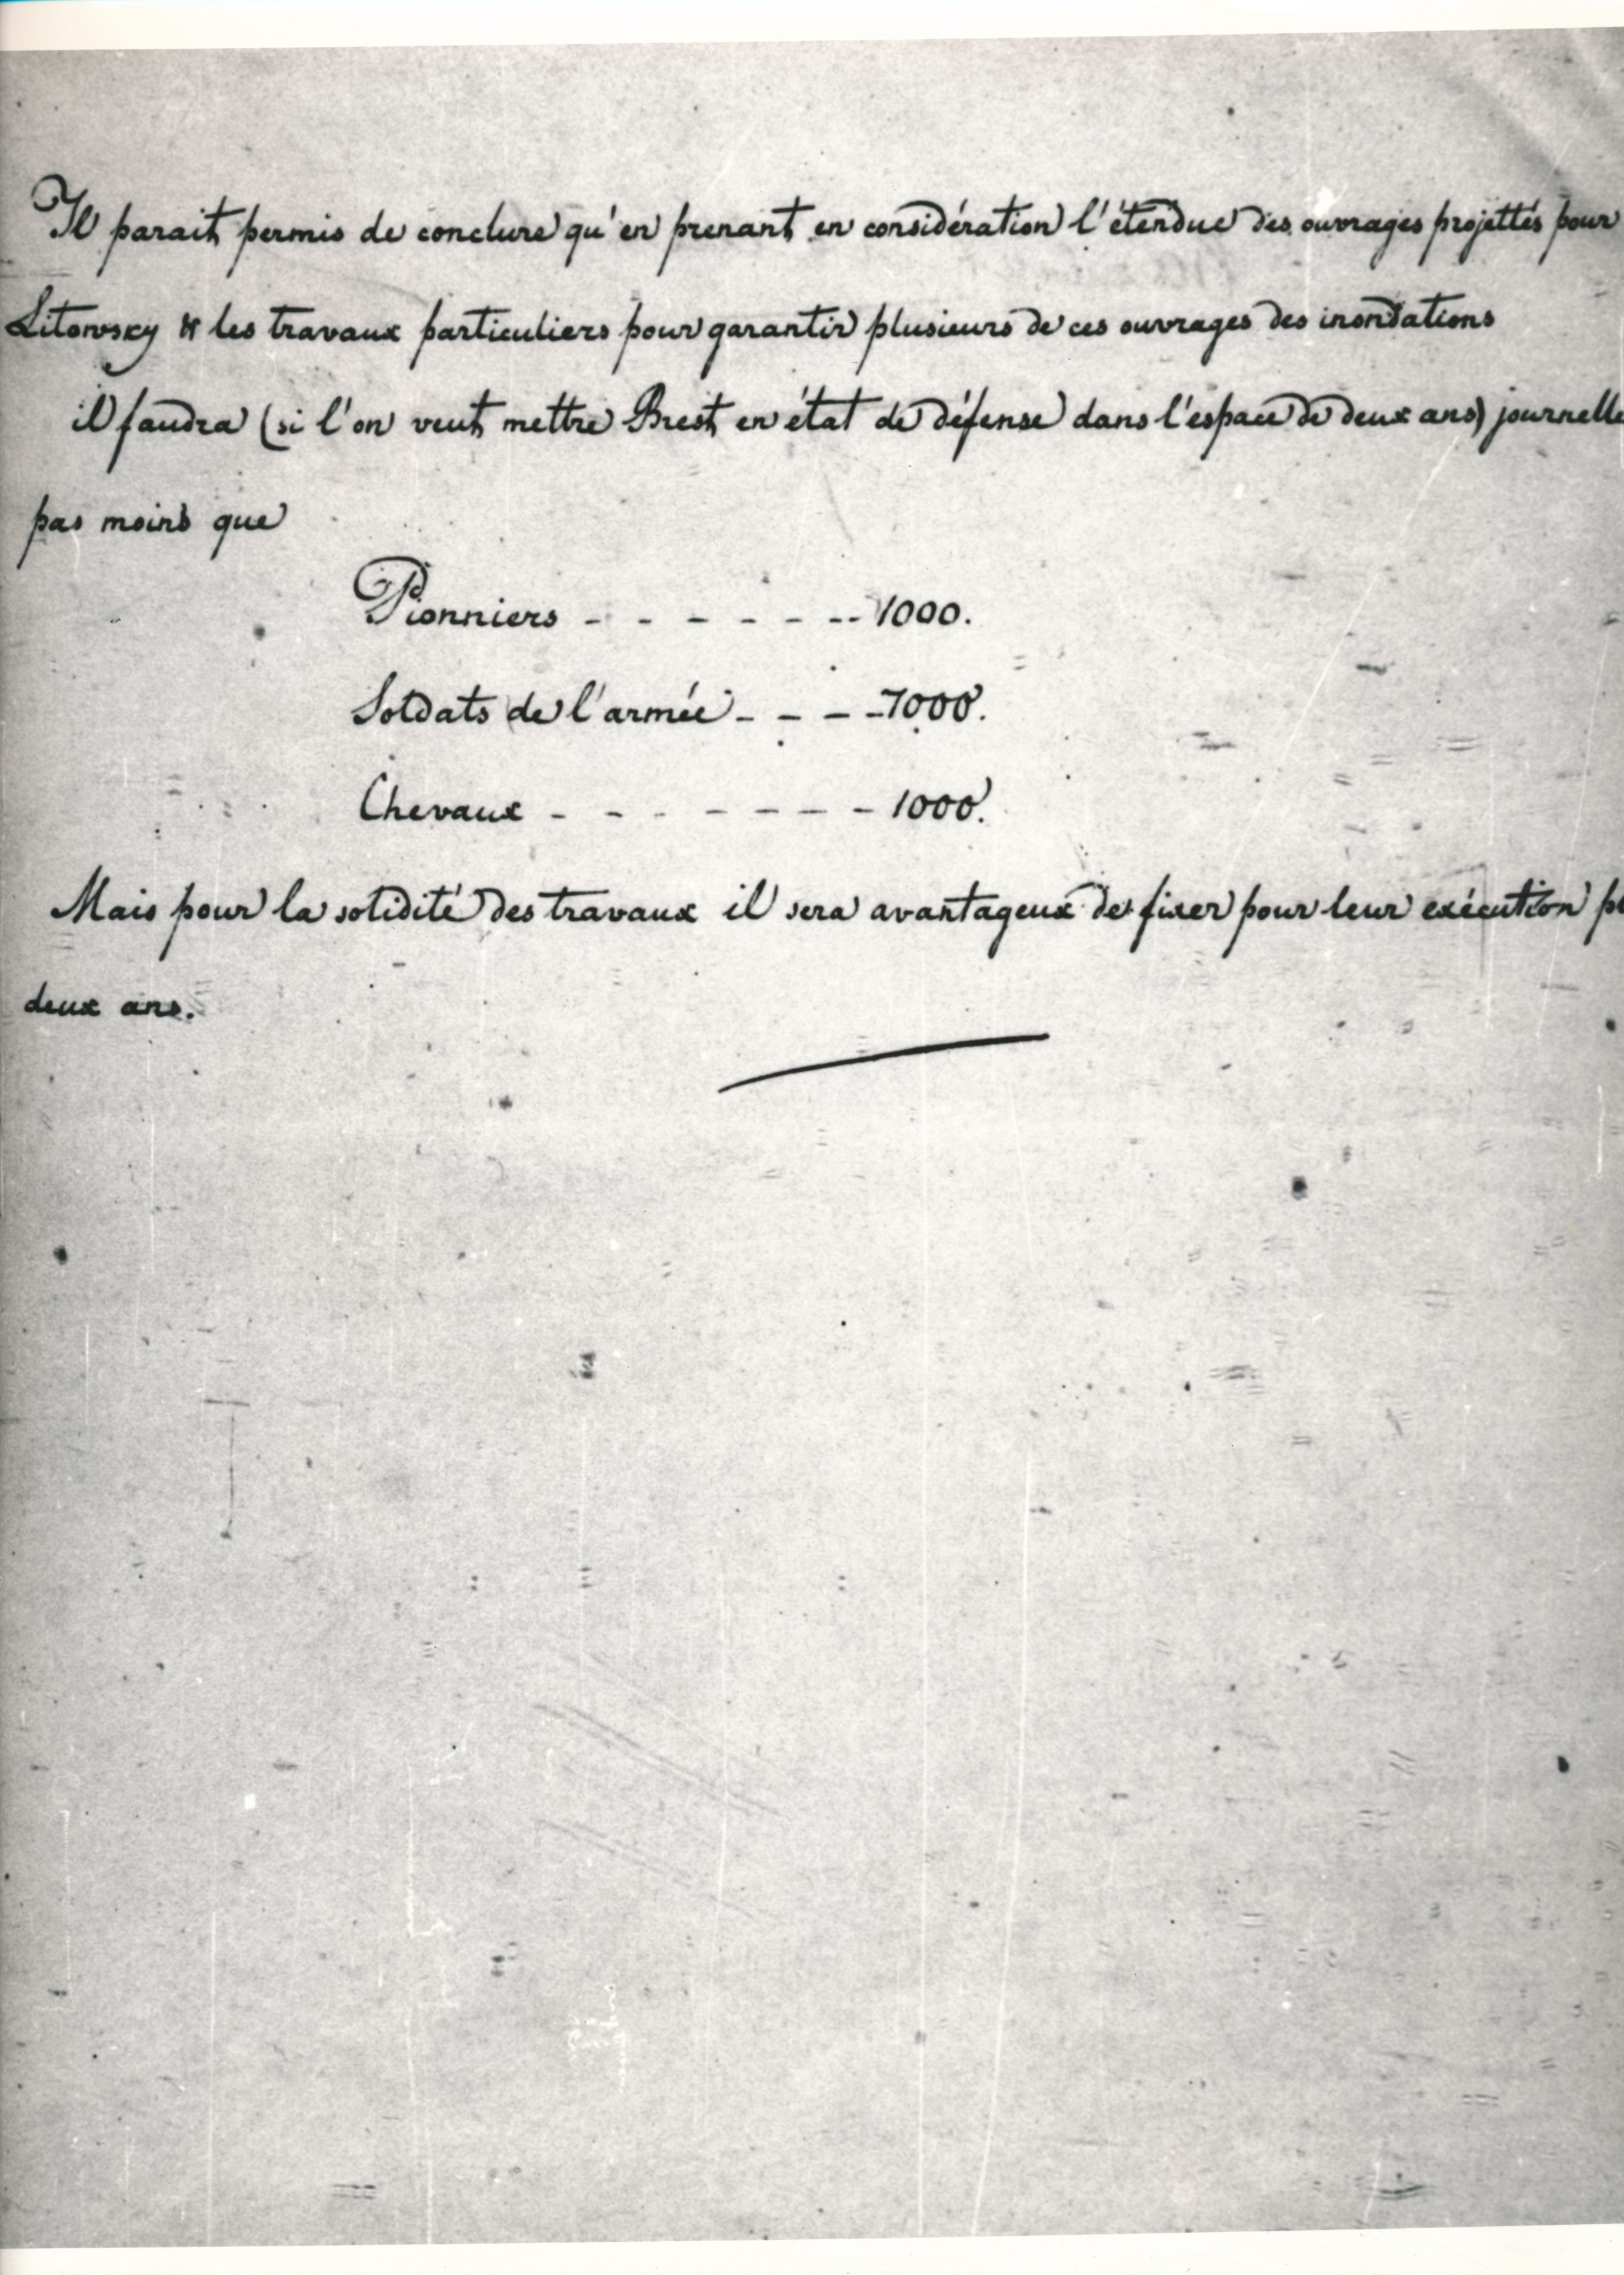 Il parait permis de conclure qu'en prenant en considération l'étendue des ouvrages projettés pour
Litowsky et les travaux particuliers pour garantir plusieurs de ces ouvrages des inondations
il faudra (si l'on veut mettre Brest en état de défense dans l'espace de deux ans) journelle
pas moins que
Pionniers - - - - - - - 1000.
Soldats de l'armée - - - - 7000.
Chevaux - - - - - - - 1000.
Mais pour la solidité des travaux il sera avantageux de fixer pour leur exécution pl
deux ans.